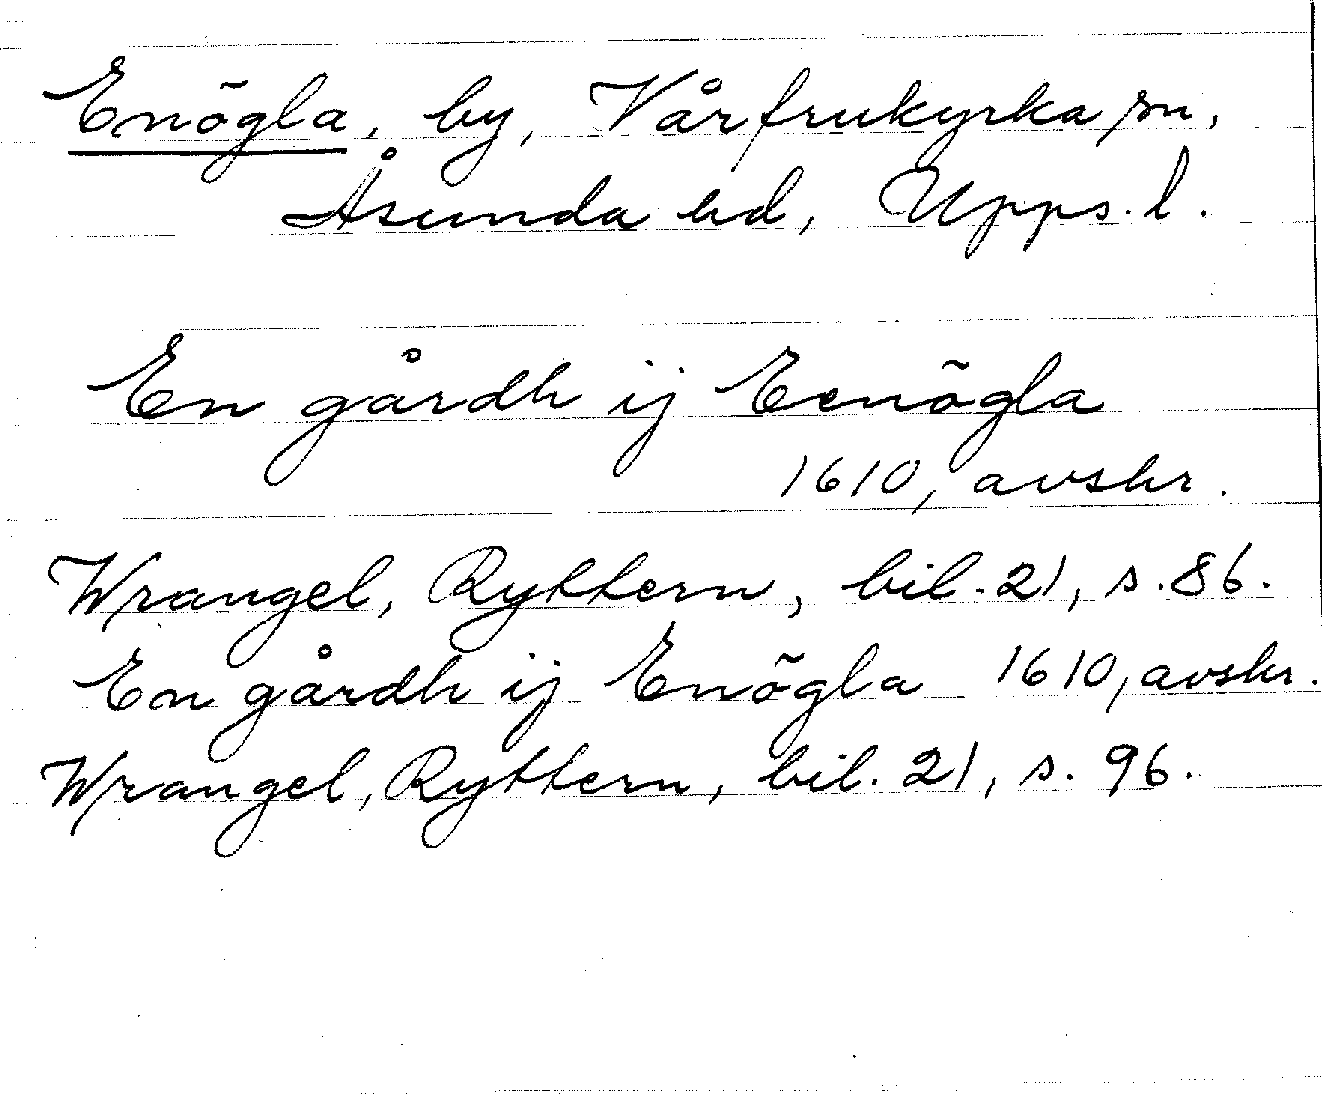 Enögla, by, Vårfrukyrka sn,
Åsunda hd, Upps. l.
En gårdh ij Eenögla
1610, avskr.
Wrangel, Ryttern, bil. 21, s. 86.
En gårdh ij Enögla 1610, avskr.
Wrangel, Ryttern, bil. 21, s. 96.